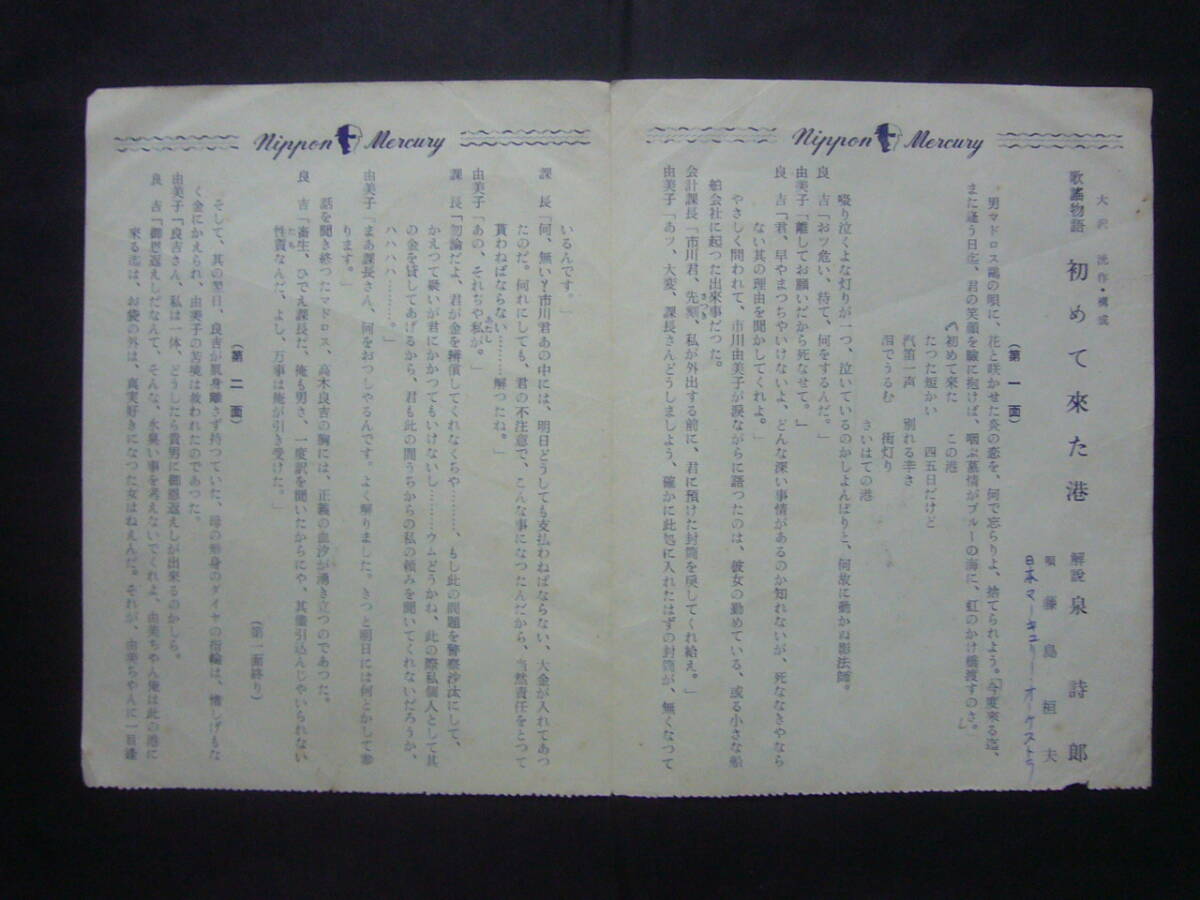 Nippon Mercury
大沢 作・構成
歌謠物語 初めて來た港 解說 泉詩郎
唄 藤島桓夫
日本マーキュリー・オーケストラ
(第一面)
男マドロス鷗の唄に、花と咲かせた炎の恋を、何で忘らりよ、捨てられよう。「今度來る迄、
また逢う日迄、君の笑顔を瞼に抱けば、咽ぶ慕情がブルーの海に、虹のかけ橋渡すのさ。」
初めて来た この港
たつた短かい 四五日だけど
汽笛一声 別れる辛さ
泪でうるむ 街灯り
さいはての港
啜り泣くよな灯りが一つ、泣いているのかしよんぼりと、何故に動かぬ影法師。
良吉「おツ危い、待て、何をするんだ。」
由美子「離してお願いだから死なせて。」
良吉「君、早やまつちやいけないよ、どんな深い事情があるのか知れないが、死ななきやなら
ない其の理由を聞かしてくれよ。」
やさしく問われて、市川由美子が涙ながらに語つたのは、彼女の勤めている、或る小さな船
舶会社に起つた出來事だつた。
会計課長「市川君、先刻、私が外出する前に、君に預けた封筒を戻してくれ給え。」
さつき
由美子「あツ、大変、課長さんどうしましよう、確かに此処に入れたはずの封筒が、無くなつて
Nippon Mercury
いるんです。」
課長「何、無い？市川君あの中には、明日どうしても支払わねばならない、大金が入れてあつ
たのだ。何れにしても、君の不注意で、こんな事になつたんだから、当然責任をとつて
貰わねばならない………解つたね。」
由美子「あの、それぢや私が。」
あたし
課長「勿論だよ、君が金を辨償してくれなくちや………、もし此の問題を警察沙汰にして、
かえつて疑いが君にかかつてもいけないし………ウムどうかね、此の際私個人として其
の金を貸してあげるから、君も此の間うちからの私の頼みを聞いてくれないだろうか、
ハハハハ………。」
由美子「まあ課長さん、何をおつしやるんです。よく解りました。きつと明日には何とかして参
ります。」
話を聞き終つたマドロス、高木良吉の胸には、正義の血汐が湧き立つのであつた。
良吉「畜生、ひでえ課長だ、俺も男さ、一度訳を聞いたからにや、其儘引込んじやいられない
性質なんだ、よし、万事は俺が引き受けた。」
たち
(第一面終り)
(第二面)
そして、其の翌日、良吉が肌身離さず持つていた、母の形身のダイヤの指輪は、惜しげもな
く金にかえられ、由美子の苦境は救われたのであつた。
由美子「良吉さん、私は一体、どうしたら貴男に御恩返えしが出來るのかしら。
良吉「御恩返えしだなんて、そんな、水臭い事を考えないでくれよ、由美ちやん俺は此の港に
来る迄は、お袋の外は、真実好きになつた女はねえんだ。それが、由美ちやんに一目逢